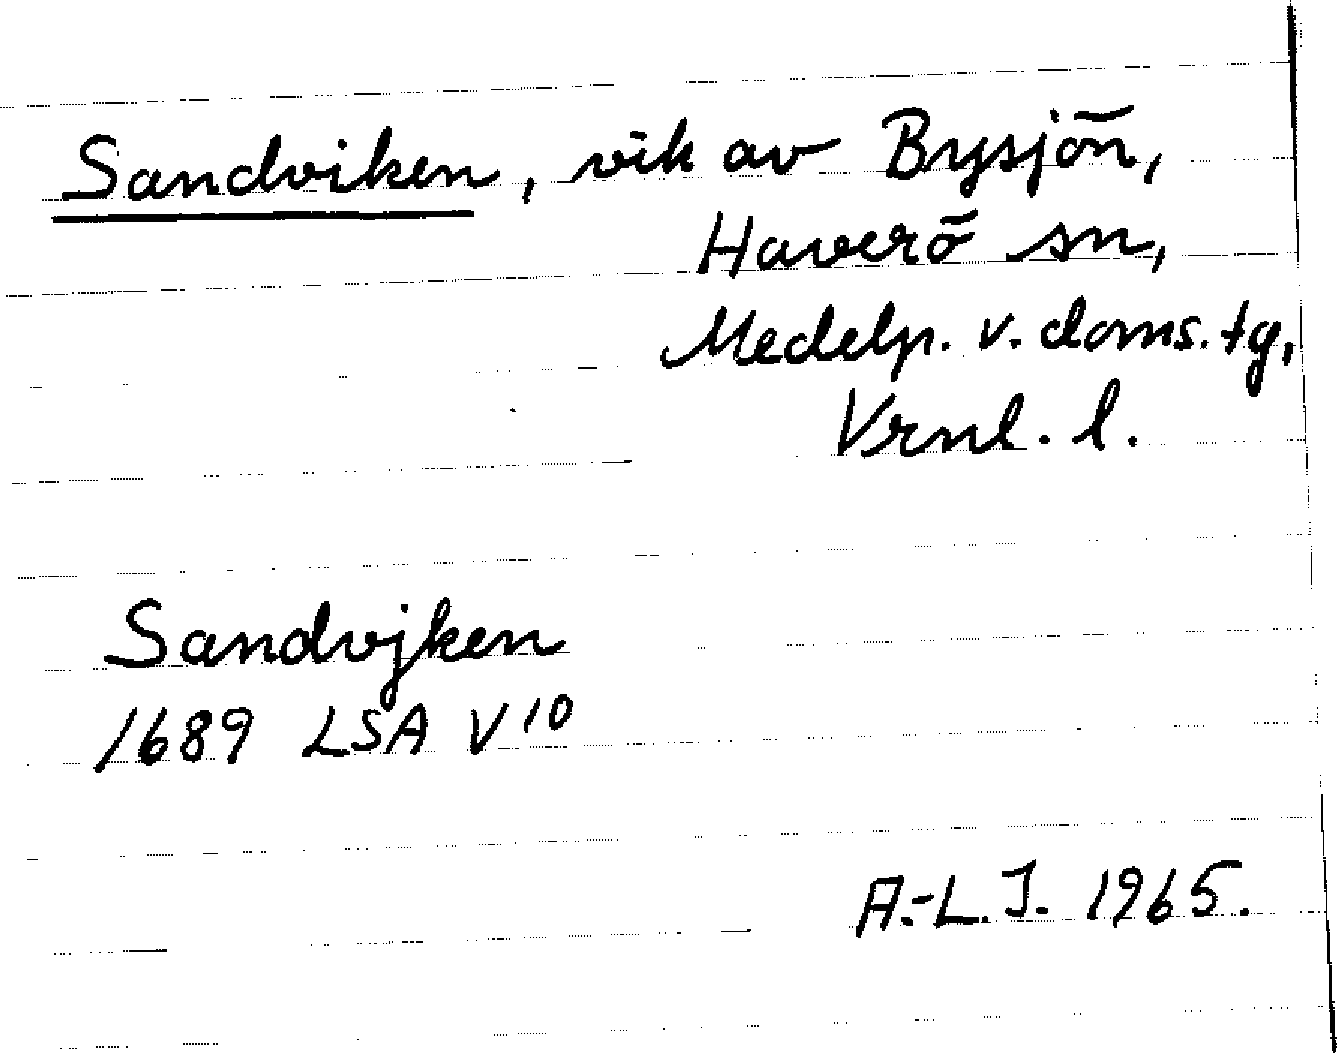 Sandviken, vik av Bysjön,
Haverö sn,
Medelp. v. doms. tg,
Vrnl. l.
Sandvjken
1689 LSA V 10
A.-L. J. 1965.